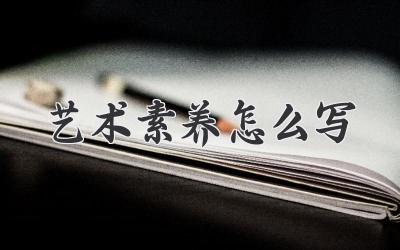 艺术素养怎么写